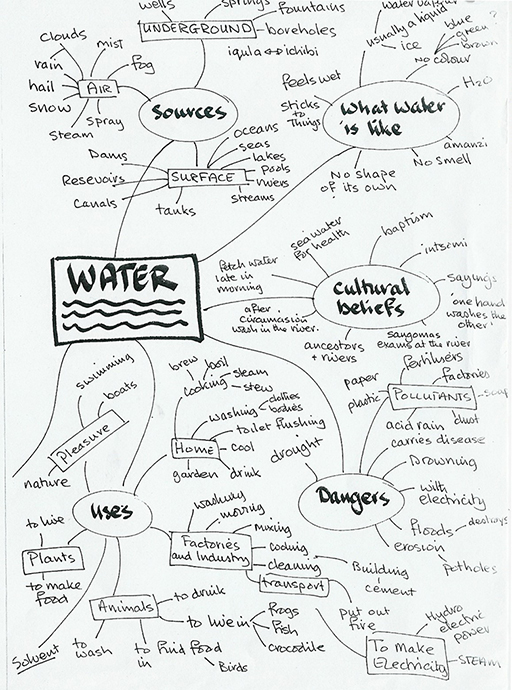 wells
springs
fountains
UNDERGROUND
boreholes
iqula ↔ ichibi
clouds
mist
rain
fog
hail
AIR
snow
spray
steam
Sources
oceans
seas
lakes
pools
rivers
streams
Dams
Resevoirs
SURFACE
Canals
tanks
usually a liquid
ice
blue
green?
brown
NO colour
H₂O
feels wet
sticks
to
Things
What water
is like
amanzi
No smell
No shape
of its own
WATER
sea water
for health
baptism
intsomi
fetch water
late in
morning
Cultural
beliefs
sayings
'one hand
washes the
other'
after
circumcision
wash in the river.
ancestors
+ rivers
sangomas
exams at the river
fertilisers
factories
paper
plastic
POLLUTANTS
soap
acid rain
dust
carries disease
Drowning
drought
Dangers
with
electricity
floods
destroys
erosion
potholes
swimming
boats
Pleasure
nature
brew
boil
steam
cooking
stew
washing
clothes
bodies
toilet flushing
Home
cool
garden
drink
uses
washing
moving
mixing
Factories
and Industry
cooling
cleaning
transport
Building
cement
put out
fire
Hydro
electric
power
To Make
Electricity
STEAM
to live
Plants
to make
food
Solvent
Animals
to drink
to live in
frogs
fish
crocodile
to
wash
to
in
to find food
Birds